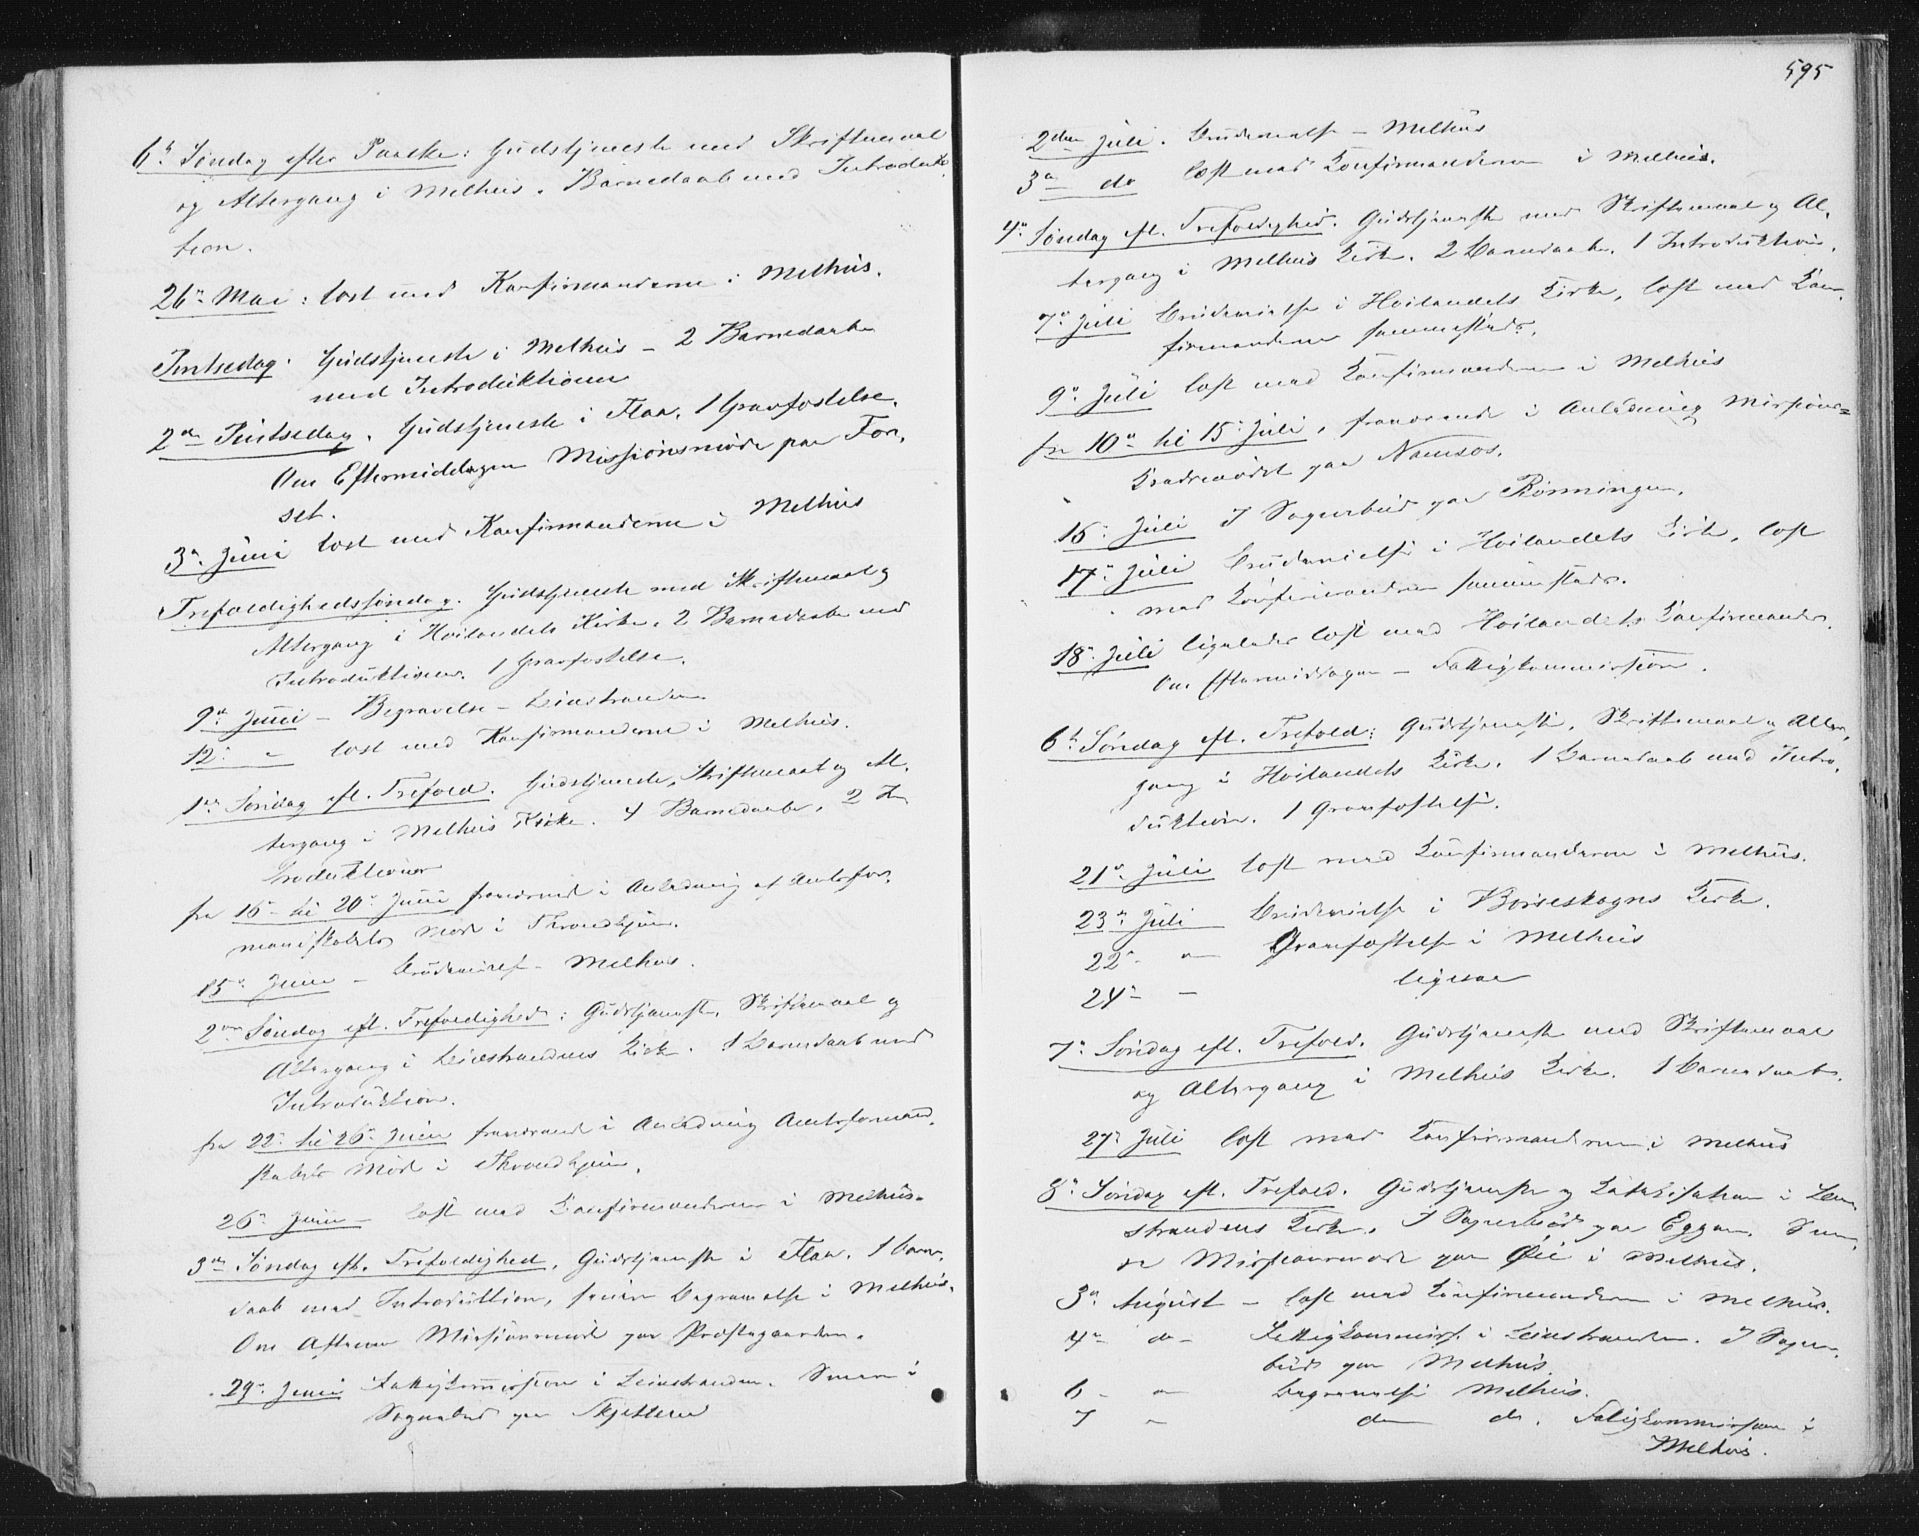 6te Søndag efter Paaske: Gudstjeneste med Skriftemaal
og Altergang i Melhus. Barnedaab med Introduk-
tion.
26de Mai: læst med Konfirmanderne i Melhus.
Pintsedag. Gudstjeneste i Melhus – 2 Barnedaabe
med Introduktioner
2den Pintsedag. Gudstjeneste i Flaa. 1 Gravfæstelse.
Om Eftermiddagen Missionsmøde paa For-
set.
3de Juni læst med Konfirmanderne i Melhus
Trefoldighedssøndag. Gudstjeneste med Skriftemaal og
Altergang i Høilandets Kirke. 2 Barnedaabe med
Introduktioner. 1 Gravfæstelse.
9de Juni – Begravelse – Leinstranden
12te " læst med Konfirmanderne i Melhus.
1ste Søndag eft. Trefold. Gudstjeneste, Skriftemaal og Al-
tergang i Melhus Kirke. 4 Barnedaabe. 2 In-
troduktioner
fra 16de til 20de Juni fraværende i Anledning af Amtsfor-
manskabets Møde i Throndhjem.
15de Juni – Brudevielse – Melhus.
2den Søndag eft. Trefoldighed: Gudstjeneste, Skriftemaal og
Altergang i Leinstrandens Kirke. 1 Barnedaab med
Introduktion.
fra 22de til 26de Juni fraværende i Anledning Amtsformand-
skabets Møde i Throndhjem.
26de Juni – læst med Konfirmanderne i Melhus.
3die Søndag eft. Trefoldighed. Gudstjeneste i Flaa. 1 Barne-
daab med Introduktion, senere Begravelse i Melhus.
Om Aftenen Missionsmøde paa Præstegaarden.
29de Juni Fattigkommission i Leinstranden. Senere i
Sognebud paa Skjetlein
595
2den Juli. Brudevielse – Melhus
3die do læst med Konfirmanderne i Melhus.
4de Søndag eft. Trefoldighed. Gudstjeneste med Skriftemaal og Al-
tergang i Melhus Kirke. 2 Barnedaabe. 1 Introduktion.
7de Juli Brudevielse i Høilandets Kirke, læst med Kon-
firmanderne sammesteds.
9de Juli læst med Konfirmanderne i Melhus
fra 10de til 15de Juli, fraværende i Anledning Missions-
kredsmødet paa Namsos.
16de Juli I Sognebud paa Rønningen.
17de Juli Brudevielse i Høilandets Kirke, læst
med Konfirmanderne sammesteds.
18de Juli ligeledes læst med Høilandets Konfirmander.
Om Eftermiddagen – Fattigkommission.
6te Søndag eft. Trefold: Gudstjeneste, Skriftemaal og Alter-
gang i Høilandets Kirke. 1 Barnedaab med Intro-
duktion. 1 Gravfæstelse.
21de Juli læst med Konfirmanderne i Melhus.
23de Juli Brudevielse i Børseskogns Kirke.
22de " Gravfæstelse i Melhus
24de – ligesaa
7de Søndag eft. Trefold. Gudstjeneste med Skriftemaal
og Altergang i Melhus Kirke. 1 Barnedaab.
27de Juli læst med Konfirmanderne i Melhus
8de Søndag eft. Trefold. Gudstjeneste og Katekisation i Lein-
strandens Kirke. I Sognebud paa Eggen. Sene-
re Missionsmøde paa Øie i Melhus.
3die August – læst med Konfirmanderne i Melhus.
4de do – Fattigkommiss. i Leinstranden. I Sogne-
bud paa Melhus.
6 – " Begravelse Melhus.
7 " do do. Fatigkommission i
Melhus.